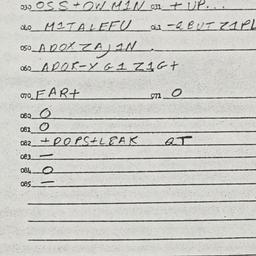 030 OSS+OWM1N 031 + UP...
040 M1TALEFU 041 -GBUTZ1PL
050 ADOXZAJ1N
060 ADOR-YG1Z1G+
070 FAR+ 071 O
080 O
081 O
082 +POPS+LEAK QT
083 —
084 O
085 —